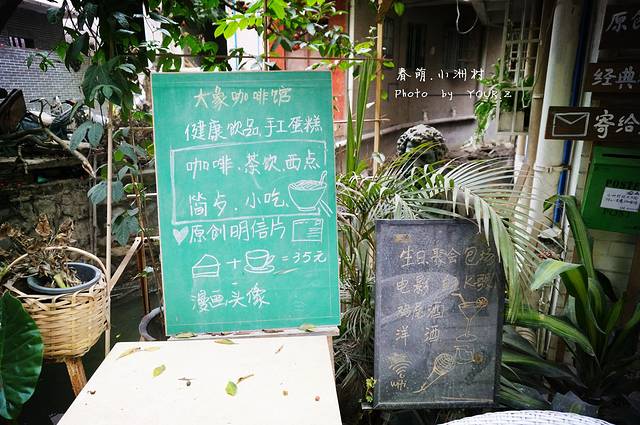 大象咖啡馆
健康饮品,手工蛋糕
咖啡.茶饮.西点
简歺.小吃.
原创明信片
+ =35元
漫画头像
春萌.小洲村
Photo by YOUR.Z
生日聚会包场
电影 K歌
鸡尾酒
洋酒
wifi
原
经典
寄给